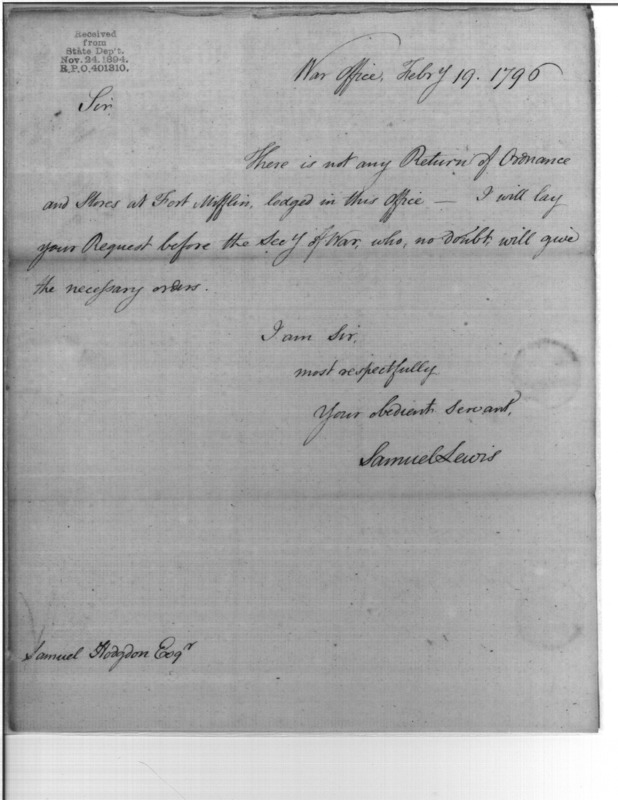 Received
from
State Dep't.
Nov. 24. 1894.
R.P.O. 401310.
War Office, Feby 19. 1796
Sir,
There is not any Return of Ordnance
and Stores at Fort Mifflin, lodged in this Office — I will lay
your Request before the Secy of War, who, no doubt, will give
the necessary orders.
I am Sir,
most respectfully
Your obedient servant,
Samuel Lewis
Samuel Hodgdon Esqr